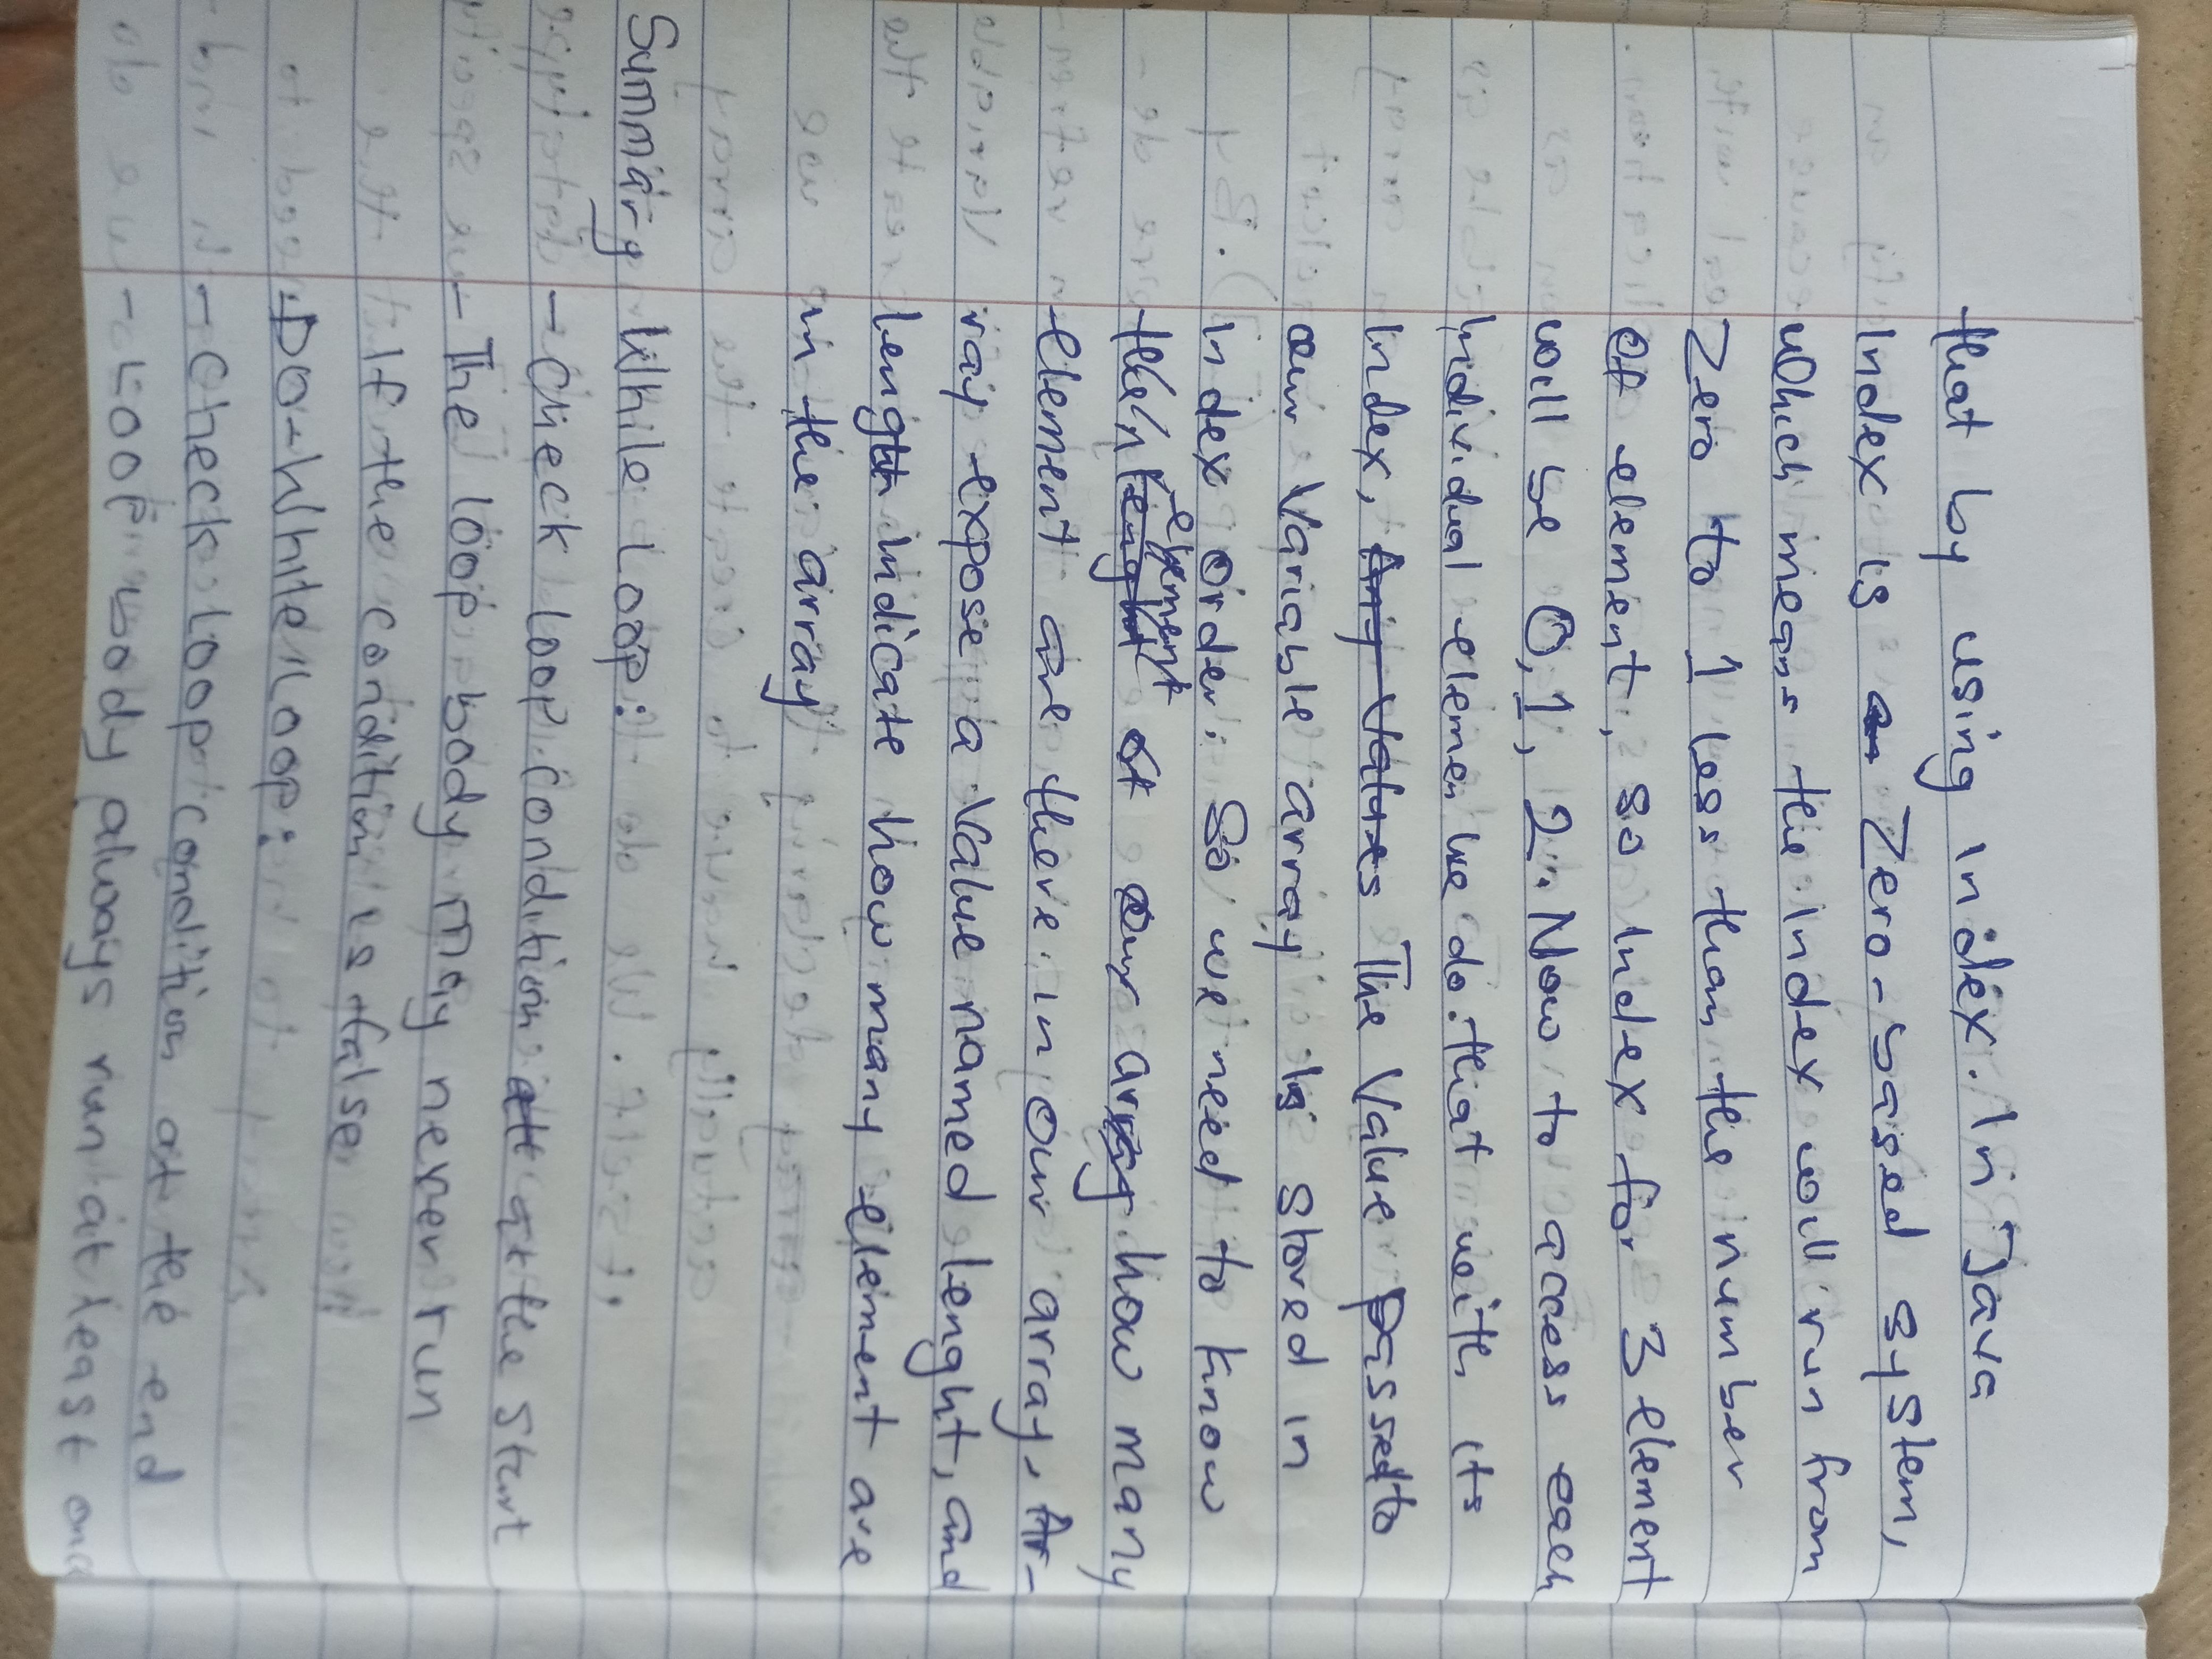 that by using Index. In Java
Index is a Zero-based system,
which means the Index will run from
Zero to 1 less than the number
of element, so Index for 3 element
will be 0, 1, 2. Now to access each
Individual elemen we do that with its
Index, Any Values The Value passed to
our Variable array is stored in
index order. So we need to know
the lenght element of our array how many
element are there in our array, Ar-
ray expose a Value named lenght, and
lenght indicate how many element are
in the array
Summary While Loop:
- Check loop condition at at the start
- The loop body may never run
If the condition is false
Do-While Loop:
- Check loop condition at the end
- Loop body always run at least once